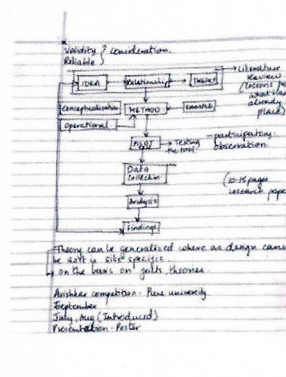 Validity } consideration.
Reliable }
IDEA Relationship THEORY Literature
Review
(lessons
what
already
place)
Conceptualisation METHOD
Operational
PILOT Testing the tool - participatory
observation.
Data
Collection
(10-15 pages
research paper
Analysis
Findings
Theory can be generalized where as design cannot
be as it is site specific
on the basis on theories.
Avishkar competition - Pune university
September
July, Aug (Introduced)
Presentation - Poster